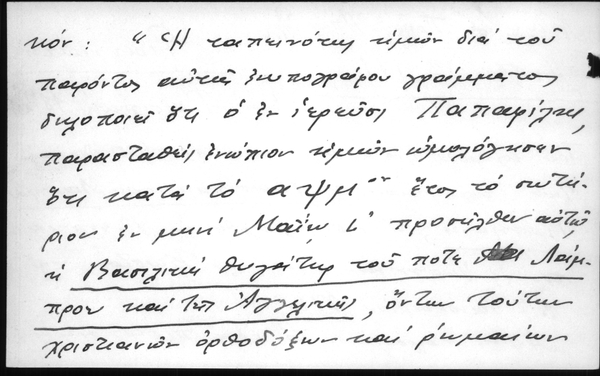 κόν: "Ἡ ταπεινότης ἡμῶν διά τοῦ
παρόντος αὐτῆς ἐνυπογράφου γράμματος
δηλοποιεῖ ὅτι ὁ ἐν ἱερεῦσι Παπαφίλης,
παρασταθείς ἐνώπιον ἡμῶν ὡμολόγησεν
ὅτι κατά τό αψμ ον ἔτος τό σωτή-
ριον ἐν μηνί Μαΐῳ ι' προσῆλθεν αὐτῷ
ἡ Βασιλική θυγάτηρ τοῦ ποτέ Λάμ-
πρου καί τῆς Ἀγγελικῆς, ὄντων τούτων
χριστιανῶν ὀρθοδόξων καί ρωμαίων